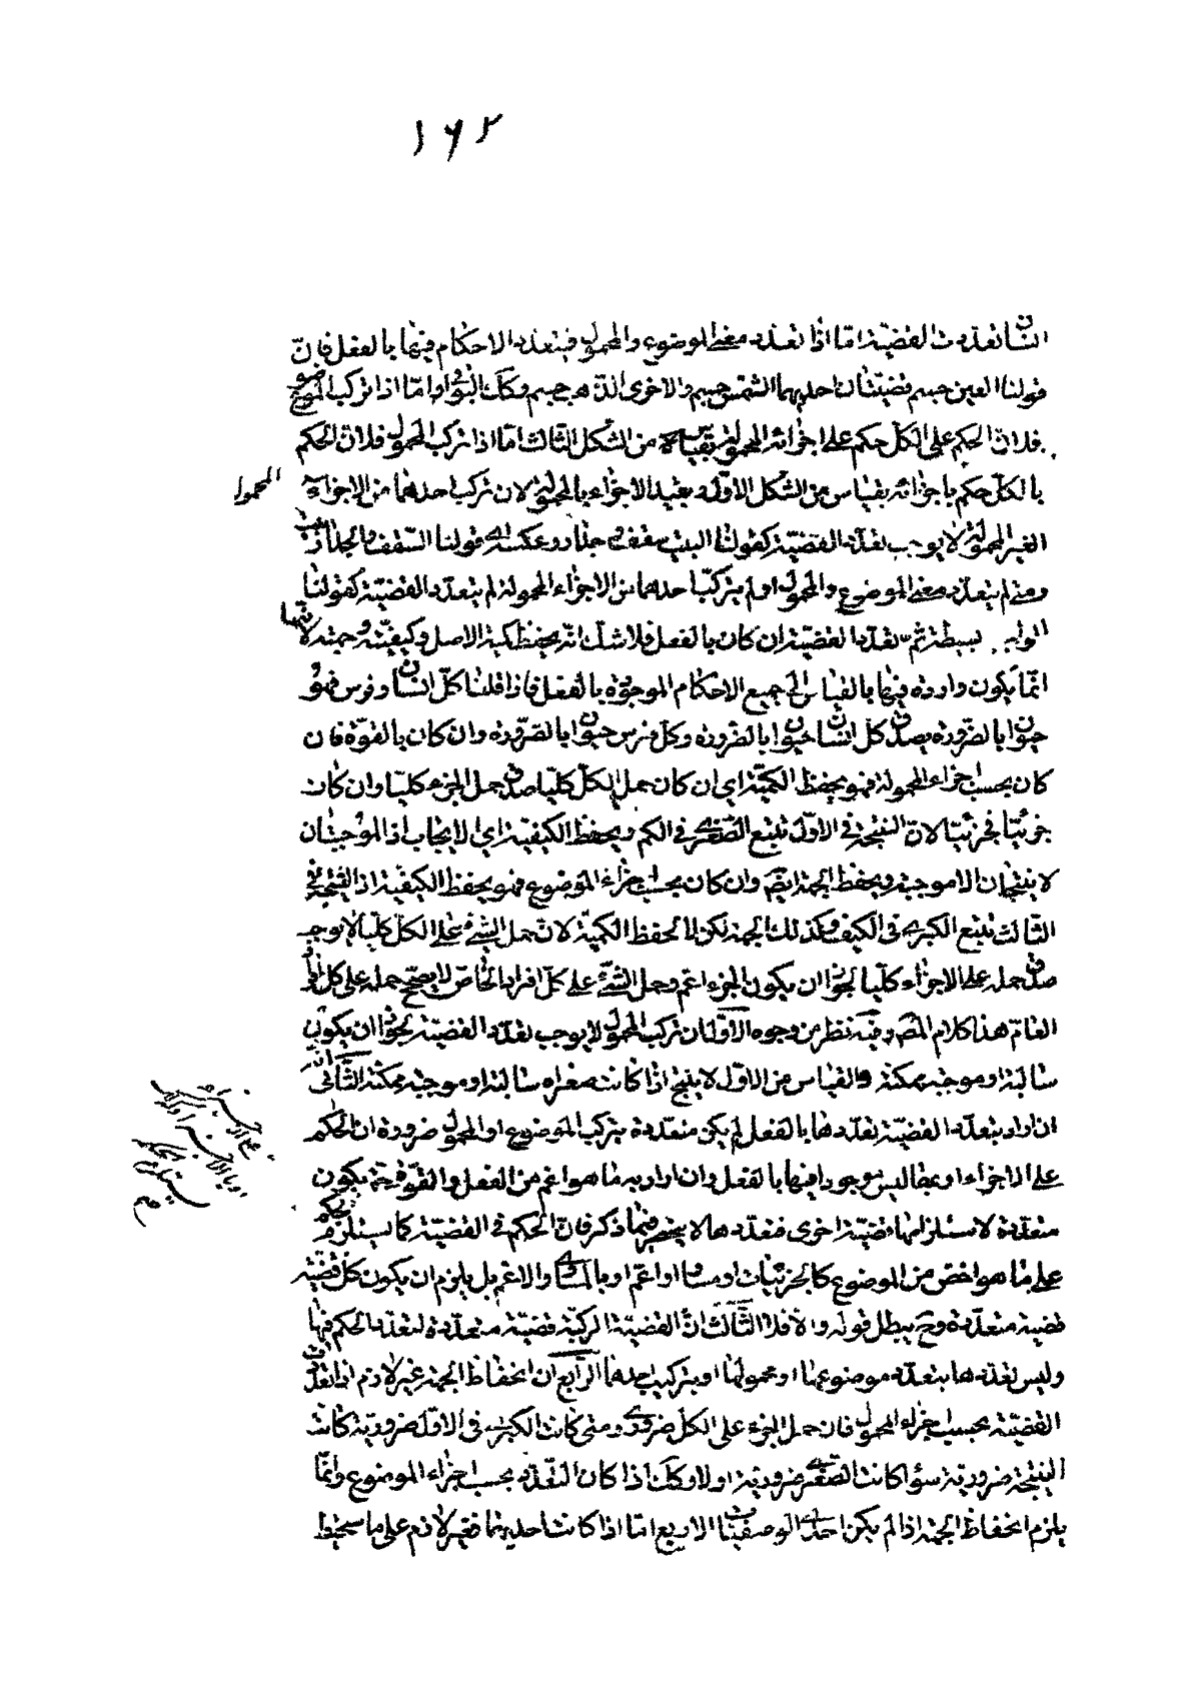 ١٦٢
الثانى تعددت القضية اما اذا تعدد معنى الموضوع والمحمول فيتعدد الاحكام فيها بالفعل فان
قولنا العين جسم قضيتان احديهما الشمس جسم والاخرى الذهب جسم وكك البواقى واما اذا تركب الموضوع
فلان الحكم على الكل حكم على اجزائه المحمولة بقياس من الشكل الثالث اما اذا تركب المحمول فلان الحكم
بالكل حكم باجزائه بقياس من الشكل الاول وتقييد الاجزاء بالمحمولة لان تركب احدهما من الاجزاء
المحمول
الغير المحمولة لا يوجب تعدد القضية كقولنا البيت سقف وجدار وعكسه اى قولنا السقف والجدار
ومتى لم يتعدد معنى الموضوع والمحمول او لم يتركب احدهما من الاجزاء المحمولة لم يتعدد القضية كقولنا
بسيطة ثم تعدد القضية ان كان بالفعل فلا شك انه يحفظ كمية الاصل وكيفيته وجهته لانها
انما يكون واردة فيها بالقياس الى جميع الاحكام الموجودة بالفعل فاذا قلنا كل انسان وفرس فهو
حيوان بالضرورة يصدق كل انسان حيوان بالضرورة وكل فرس حيوان بالضرورة وان كان بالقوة فان
كان بحسب اجزاء المحمول فهو يحفظ الكمية اى ان كان حمل الكل كليا صدق حمل الجزء كليا وان كان
جزئيا فجزئيا لان النتيجة فى الاول تتبع الصغرى فى الكم ويحفظ الكيفية اى الايجاب اذ الموجبتان
لا ينتجان الا موجبة ويحفظ الجهة ايضا وان كان بحسب اجزاء الموضوع فهو يحفظ الكيفية اذ النتيجة فى
الثالث تتبع الكبرى فى الكيف وكذلك الجهة لكن لا يحفظ الكمية لان حمل الشىء على الكل كليا لا يوجب
صدق حمله على الاجزاء كليا لجواز ان يكون الجزء اعم وحمل الشىء على كل افراد الخاص لا يصحح حمله على كل افراد
العام هذا كلام المصـ وفيه نظر من وجوه الاول ان تركب المحمول لا يوجب تعدد القضية لجواز ان يكون
سالبة او موجبة ممكنة والقياس من الاول لا ينتج اذا كانت صغراه سالبة او موجبة ممكنة الثانى انه
ان اراد بتعدد القضية تعددها بالفعل لم يكن متعددة بتركب الموضوع او المحمول ضرورة ان الحكم
على الاجزاء او بها ليس موجودا فيها بالفعل وان اراد به ما هو اعم من الفعل والقوة فحـ يكون
متعددة لاستلزامها قضية اخرى فتعددها لا ينحصر فيما ذكر فان الحكم فى القضية كما يستلزم الحكم
على ما هو اخص من الموضوع كالجزئيات او مساو او اعم او بالمساوى والاعم بل يلزم ان يكون كل قضية
قضية متعددة وحـ يبطل قوله والا فلا الثالث ان القضية المركبة قضية متعددة لتعدد الحكم فيها
وليس تعددها بتعدد موضوعها او محمولها او بتركيب احدهما الرابع ان انحفاظ الجهة غير لازم اذا تعددت
القضية بحسب اجزاء المحمول فان حمل الجزء على الكل ضرورى ومتى كانت الكبرى فى الاول ضرورية كانت
النتيجة ضرورية سواء كانت الصغرى ضرورية اولا وكك اذا كان التعدد بحسب اجزاء الموضوع وانما
يلزم انحفاظ الجهة اذا لم يكن احدى الوصفيات الاربع اما اذا كانت احديهما فغير لازم على ما سيحيط